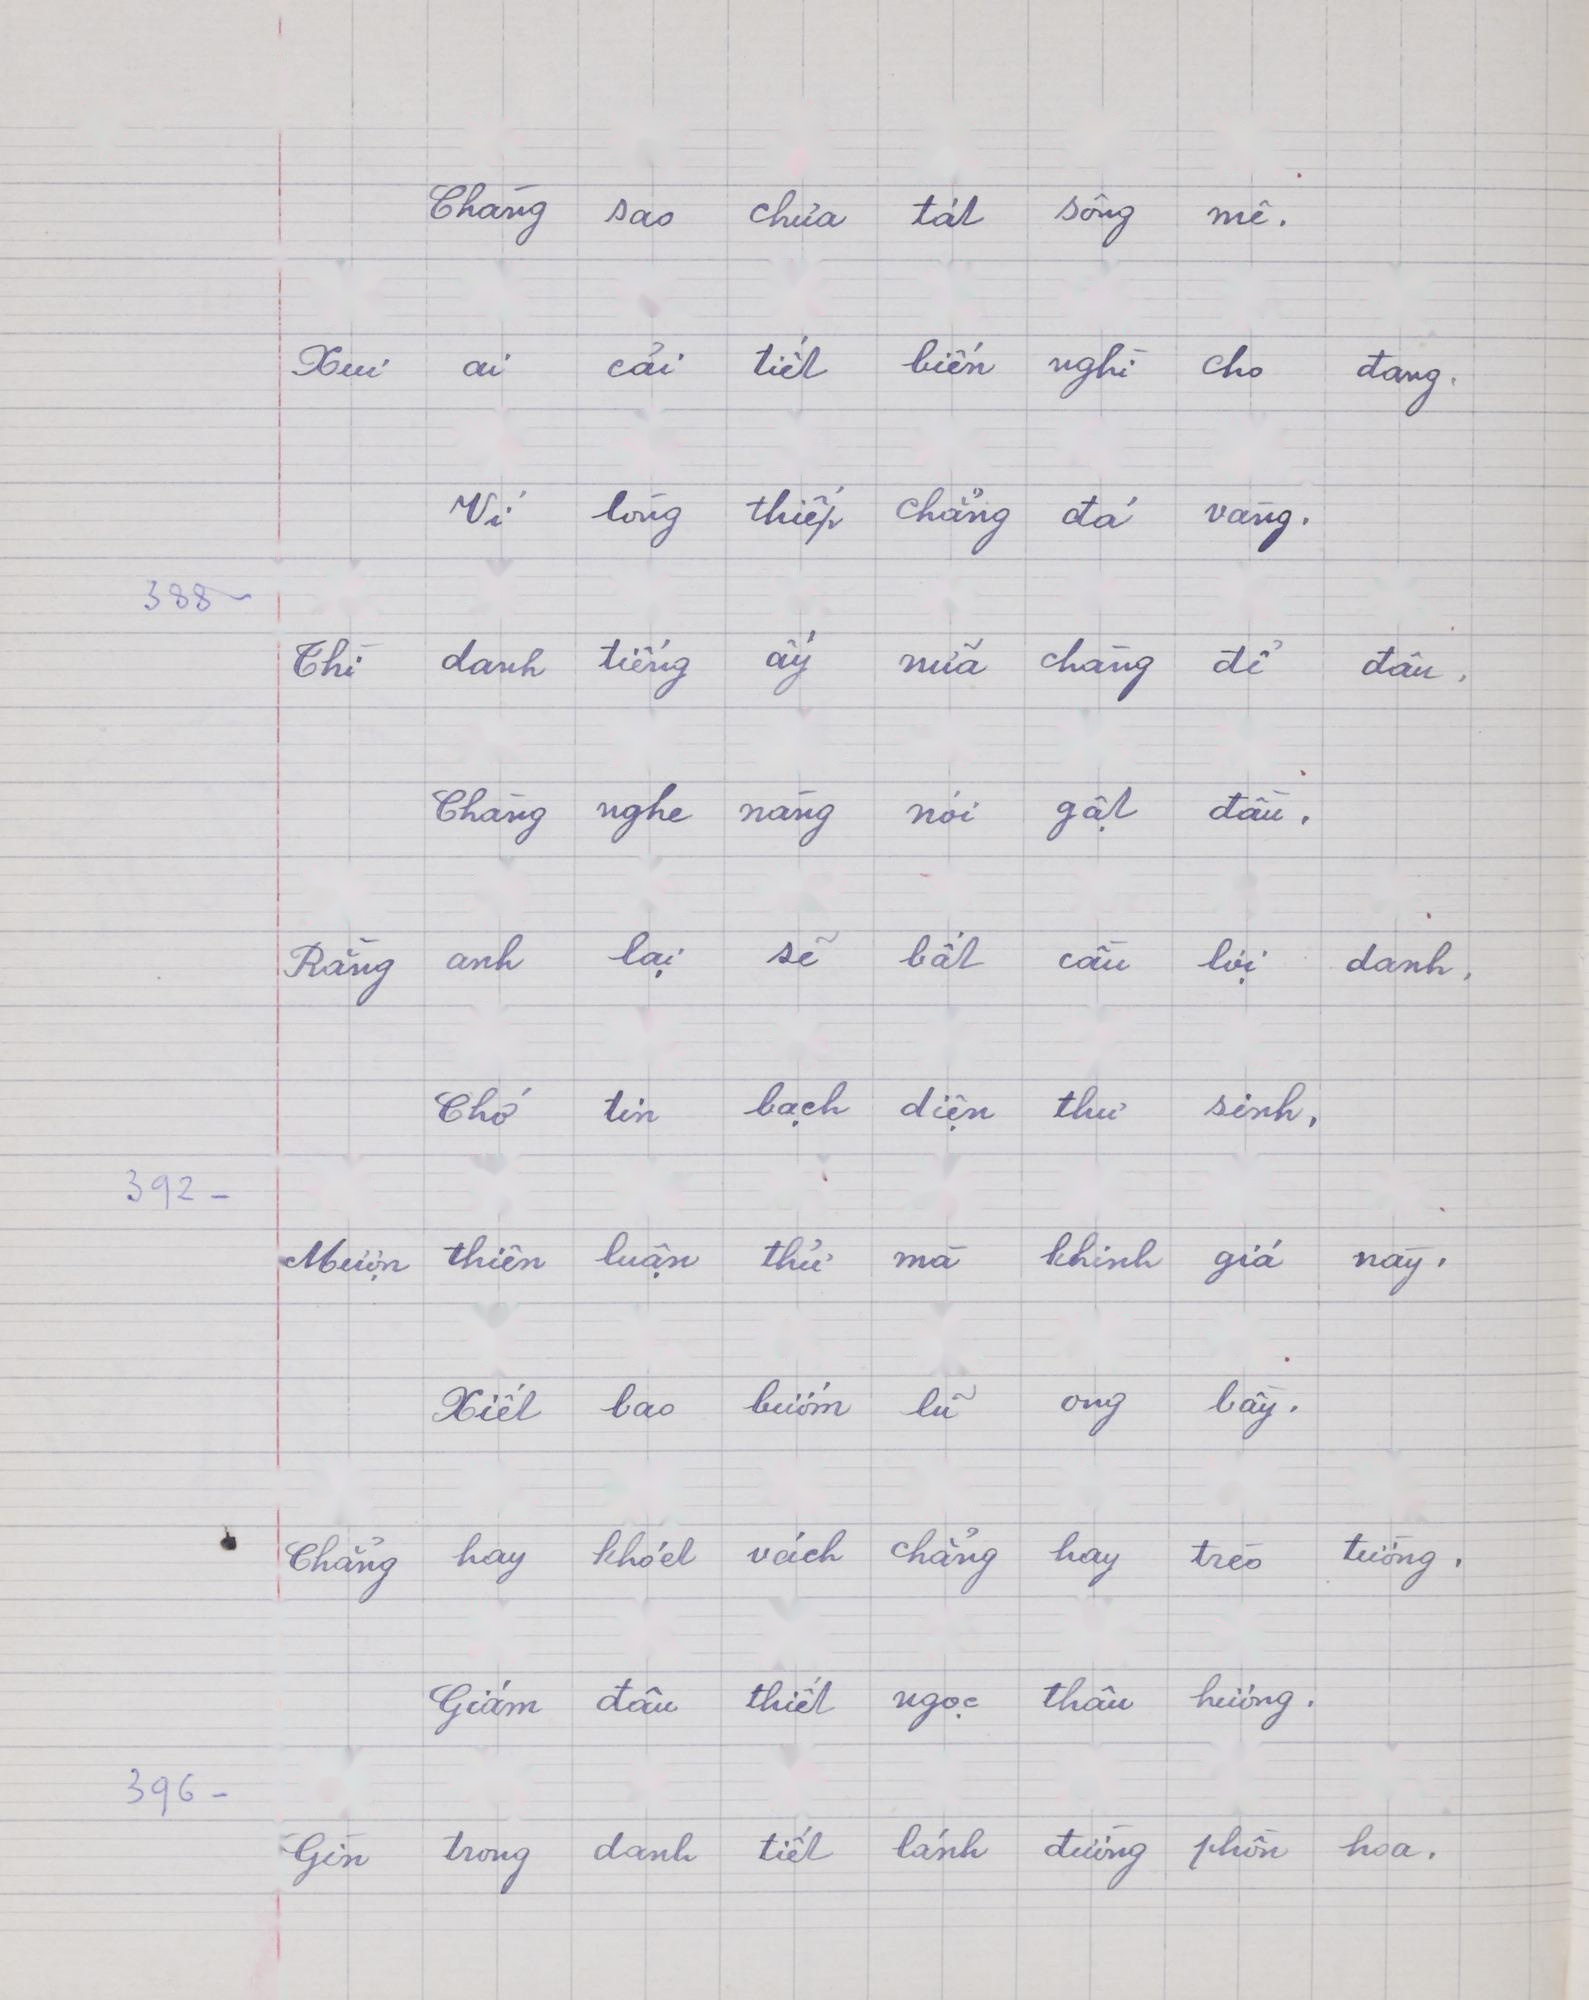 Chàng sao chửa tát sông mê.
Xui ai cải tiết biến nghì cho đang.
Ví lòng thiếp chẳng đá vàng.
388-
Thì danh tiếng ấy nữa chàng để đâu.
Chàng nghe nàng nói gật đầu.
Rằng anh lại sẽ bất cầu lợi danh.
Chớ tin bạch diện thư sinh.
392-
Mượn thiên luận thử mà khinh giá này.
Xiết bao bướm lũ ong bầy.
Chẳng hay khóet vách chẳng hay trèo tường.
Giám đâu thiết ngọc thâu hương.
396-
Gìn trong danh tiết lánh đường phồn hoa.